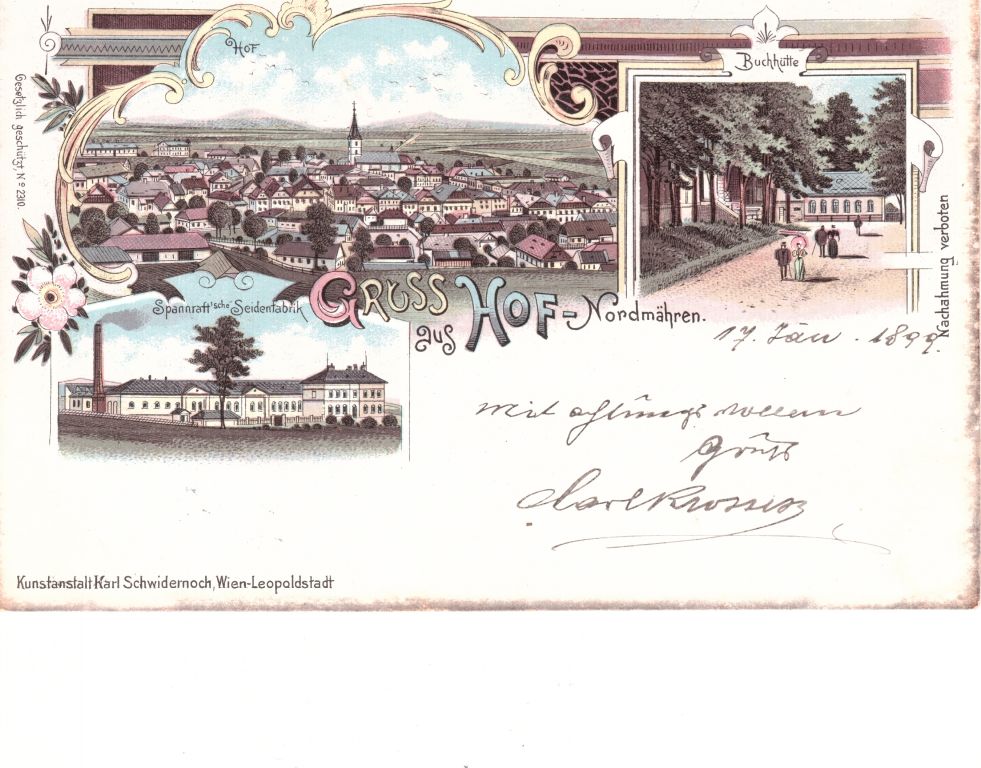 HOF
Buchhütte
Gesetzlich geschützt, Nº 2310.
Nachahmung verboten
Spannraft'sche Seidenfabrik
GRUSS
aus HOF-Nordmähren.
17. Jän. 1899.
Mit achtungsvollem
Gruß
Carl
Kunstanstalt Karl Schwidernoch, Wien-Leopoldstadt